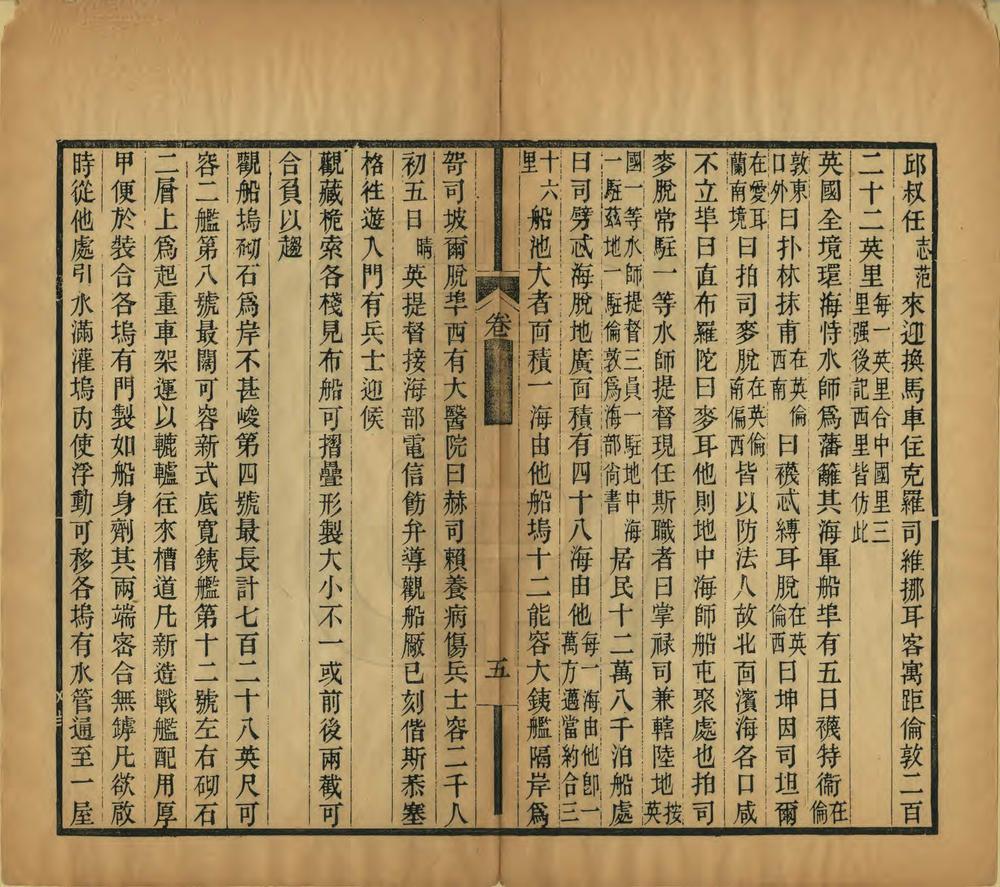 邱叔任志范來迎換馬車住克羅司維挪耳客寓距倫敦二百
二十二英里每一英里合中國里三里强後記西里皆仿此
英國全境環海恃水師爲藩籬其海軍船埠有五曰襪特衞在倫
敦東口外曰扑林抹甫在英倫西南曰襪忒縛耳脫在英倫西曰坤因司坦爾
在愛耳蘭南境曰拍司麥脫在英倫南偏西皆以防法人故北面濱海各口咸
不立埠曰直布羅陀曰麥耳他則地中海師船屯聚處也拍司
麥脫常駐一等水師提督現任斯職者曰掌祿司兼轄陸地按英
國一等水師提督三員一駐地中海一駐茲地一駐倫敦爲海部尙書居民十二萬八千泊船處
曰司劈忒海脫地廣面積有四十八海由他每一海由他卽一萬方邁當約合三
十六里船池大者面積一海由他船塢十二能容大鐵艦隔岸爲
卷
五
哿司坡爾脫埠西有大醫院曰赫司賴養病傷兵士容二千人
初五日晴英提督接海部電信飭弁導觀船厰已刻偕斯恭塞
格往遊入門有兵士迎候
觀藏桅索各棧見布船可摺疊形製大小不一或前後兩截可
合負以趨
觀船塢砌石爲岸不甚峻第四號最長計七百二十八英尺可
容二艦第八號最闊可容新式底寬鐵艦第十二號左右砌石
二層上爲起重車架運以轆轤往來槽道凡新造戰艦配用厚
甲便於裝合各塢有門製如船身劑其兩端密合無罅凡欲啟
時從他處引水滿灌塢內使浮動可移各塢有水管通至一屋